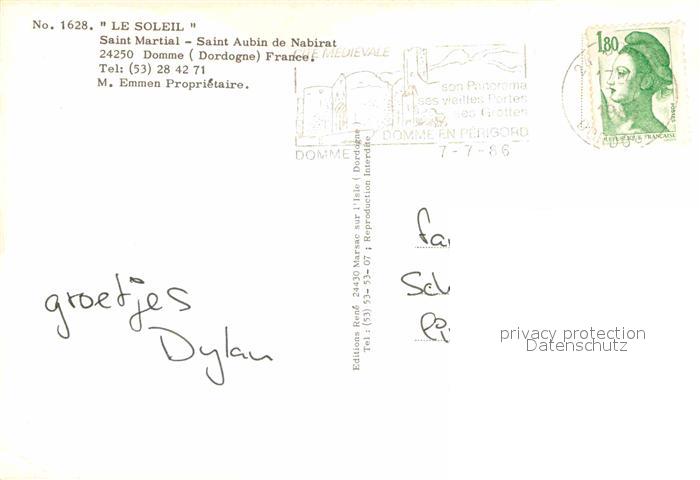 No. 1628. " LE SOLEIL "
Saint Martial - Saint Aubin de Nabirat
24250 Domme ( Dordogne) France.
Tel: (53) 28 42 71
M. Emmen Propriétaire.
CITE MEDIEVALE
son Panorama
ses vieilles Portes
ses Grottes
DOMME EN PÉRIGORD
DOMME
7-7-86
1,80
REPUBLIQUE FRANÇAISE
Editions René 24430 Marsac sur l'Isle ( Dordogne
Tel : (53) 53-53-07 ; Reproduction Interdite
groetjes
Dylan
fa
Sch
li
privacy protection
Datenschutz